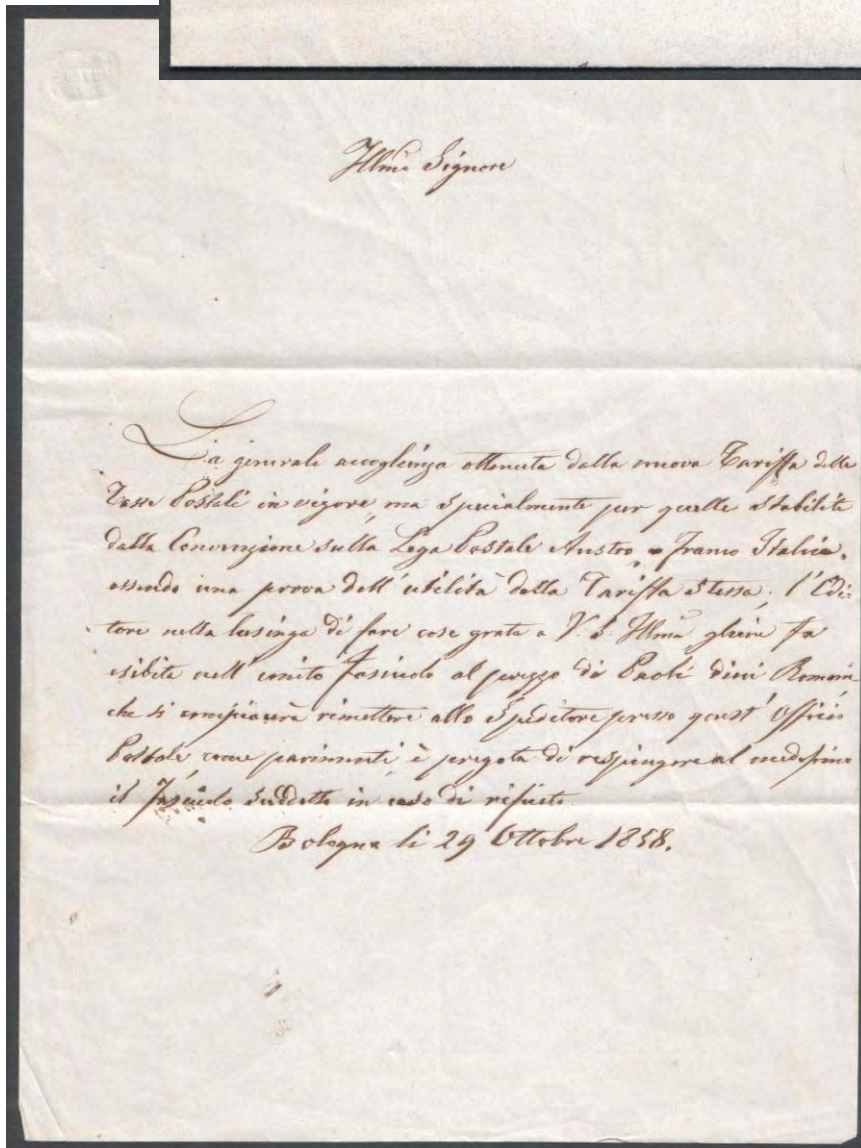 Illmo Signore
La generale accoglienza ottenuta dalla nuova Tariffa delle
Tasse Postali in vigore, ma specialmente per quelle stabilite
dalla Convenzione sulla Lega Postale Austro, e Franco Italica,
essendo una prova dell'utilità della Tariffa stessa; l'Edi=
tore nella lusinga di fare cosa grata a V. S. Illma gliene fa
esibita nell'unito Fascicolo al prezzo di Paoli dieci Romani
che si compiacerà rimettere allo Speditore presso quest'Officio
Postale come parimenti è pregata di respingere al medesimo
il Fascicolo suddetto in caso di rifiuto.
Bologna li 29 Ottobre 1858.